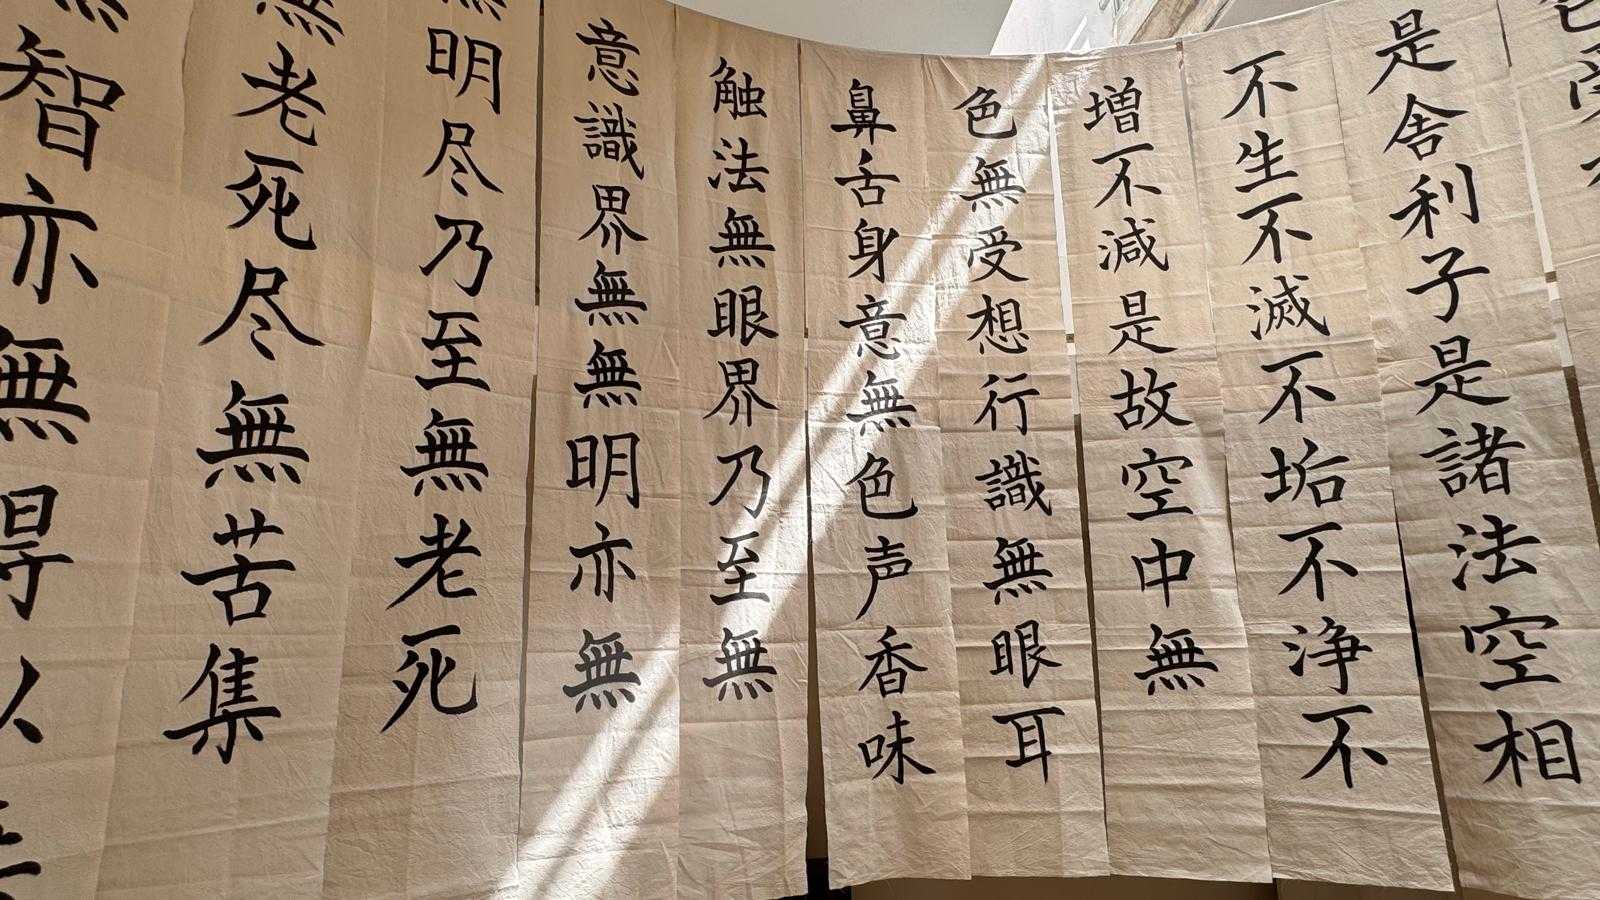 是舎利子是諸法空相
不生不滅不垢不浄不
増不減是故空中無
色無受想行識無眼耳
鼻舌身意無色声香味
触法無眼界乃至無
意識界無無明亦無
無明尽乃至無老死
無老死尽無苦集
無智亦無得以